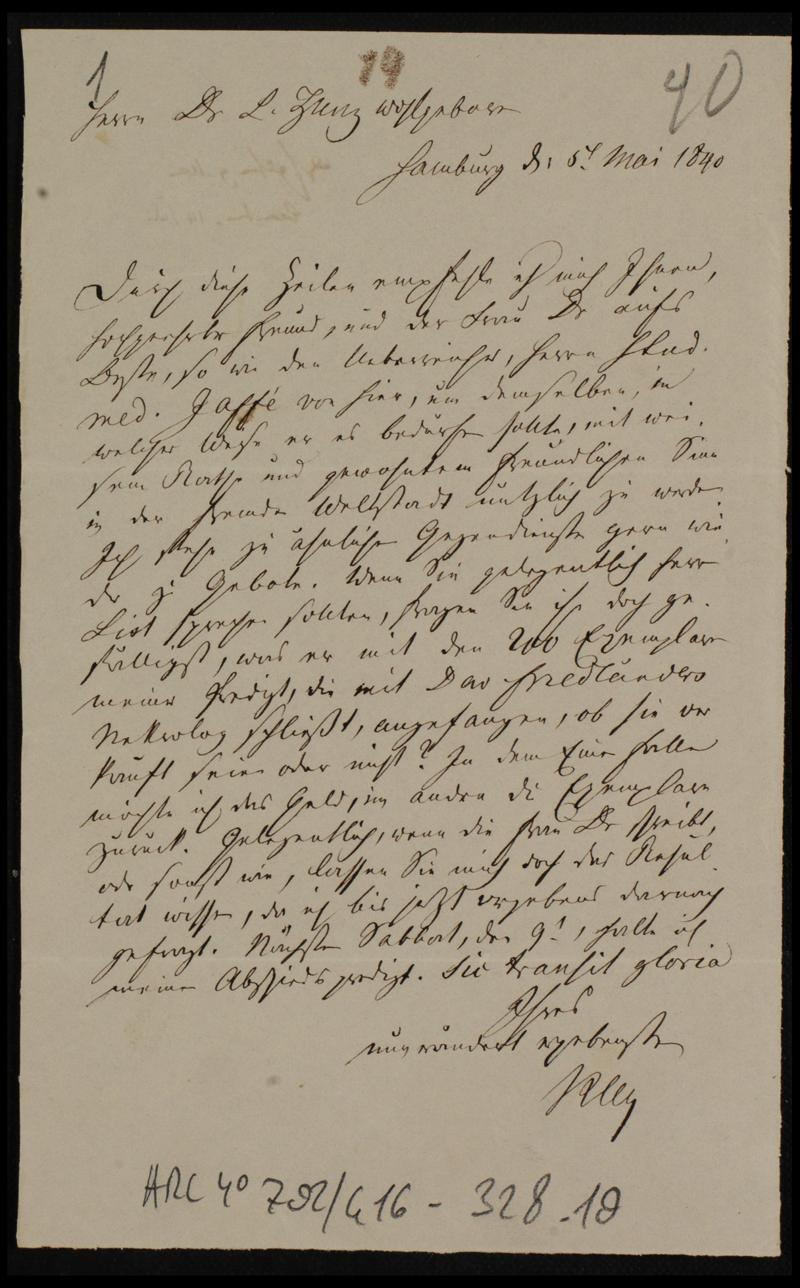 1
19
40
Herrn Dr L. Zunz wohlgeboren
Hamburg d. 5t Mai 1840
Durch diese Zeilen empfehle ich mich Ihnen,
hochgeehrter Freund, und der Frau Dr aufs
Beste, so wie den Ueberreicher, Herrn Stud.
med. Jaffé von hier, um demselben, in
welcher Weise er es bedürfen sollte, mit wei-
sem Rathe und gewohntem freundlichen Sinn
in der fremden Weltstadt nützlich zu werden.
Ich stehe zu ähnlichen Gegendiensten gern wie
der zu Gebote. Wenn Sie gelegentlich Herrn
List sprechen sollten, fragen Sie ihn doch ge-
fälligst, was er mit den 200 Exemplaren
meiner Predigt, die mit Dav Friedländers
Nekrolog schließt, angefangen, ob sie ver
kauft seien oder nicht? In dem Einen Falle
möchte ich das Geld, im andern die Exemplare
zurück. Gelegentlich, wenn die Frau Dr schreibt,
oder sonst wie, lassen Sie mich doch das Resul-
tat wissen, da ich bis jetzt vergebens darnach
gefragt. Nächsten Sabbat, den 9t, halte ich
meine Abschiedspredigt. Sic transit gloria
Ihres
unverändert ergebensten
Kley
ARC 4° 792/G16 - 328.18